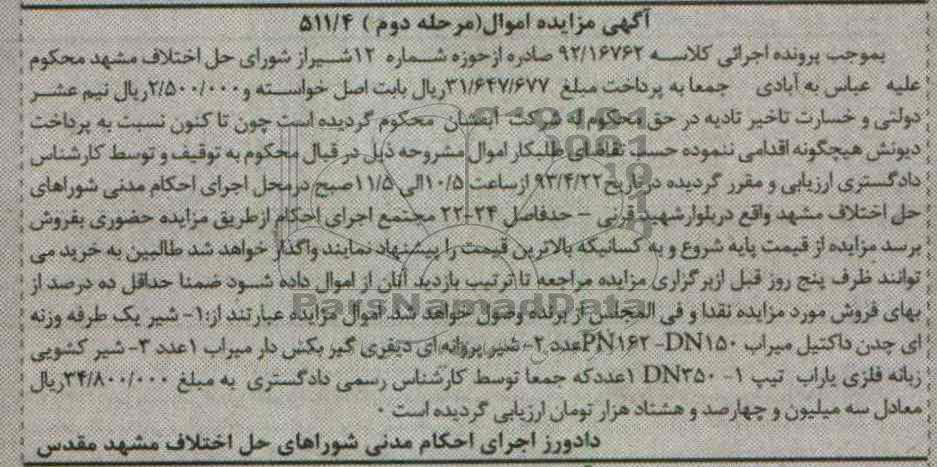 آگهی مزایده اموال(مرحله دوم ) ۵۱۱/۴
بموجب پرونده اجرائی کلاسه ۹۲/۱۶۷۶۲ صادره ازحوزه شماره ۱۲شیراز شورای حل اختلاف مشهد محکوم
علیه عباس به آبادی جمعا به پرداخت مبلغ ۳۱/۶۴۷/۶۷۷ریال بابت اصل خواسته و۲/۵۰۰/۰۰۰ریال نیم عشر
دولتی و خسارت تاخیر تادیه در حق محکوم له شرکت محکوم گردیده است چون تا کنون نسبت به پرداخت
دیونش هیچگونه اقدامی ننموده حسب تقاضای طلبکار اموال مشروحه ذیل در قبال محکوم به توقیف و توسط کارشناس
دادگستری ارزیابی و مقرر گردیده درتاریخ۹۳/۴/۲۲ ازساعت ۱۰/۵الی ۱۱/۵صبح درمحل اجرای احکام مدنی شوراهای
حل اختلاف مشهد واقع دربلوارشهید قرنی - حدفاصل ۲۴-۲۲ مجتمع اجرای احکام ازطریق مزایده حضوری بفروش
برسد مزایده از قیمت پایه شروع و به کسانیکه بالاترین قیمت را پیشنهاد نمایند واگذار خواهد شد طالبین به خرید می
توانند ظرف پنج روز قبل ازبرگزاری مزایده مراجعه تا ترتیب بازدید آنان از اموال داده شود ضمنا حداقل ده درصد از
بهای فروش مورد مزایده نقدا و فی المجلس از برنده وصول خواهد شد. اموال مزایده عبارتند از:۱- شیر یک طرفه وزنه
ای چدن داکتیل میراب PN۱۶۲ -DN۱۵۰عدد ۲- شیر پروانه ای دیفری گیر بکس دار میراب ۱عدد ۳- شیر کشویی
زبانه فلزی یاراب تیپ ۱- DN۳۵۰ ۱عددکه جمعا توسط کارشناس رسمی دادگستری به مبلغ ۳۴/۸۰۰/۰۰۰ریال
معادل سه میلیون و چهارصد و هشتاد هزار تومان ارزیابی گردیده است ۰
دادورز اجرای احکام مدنی شوراهای حل اختلاف مشهد مقدس
ParsNamadData